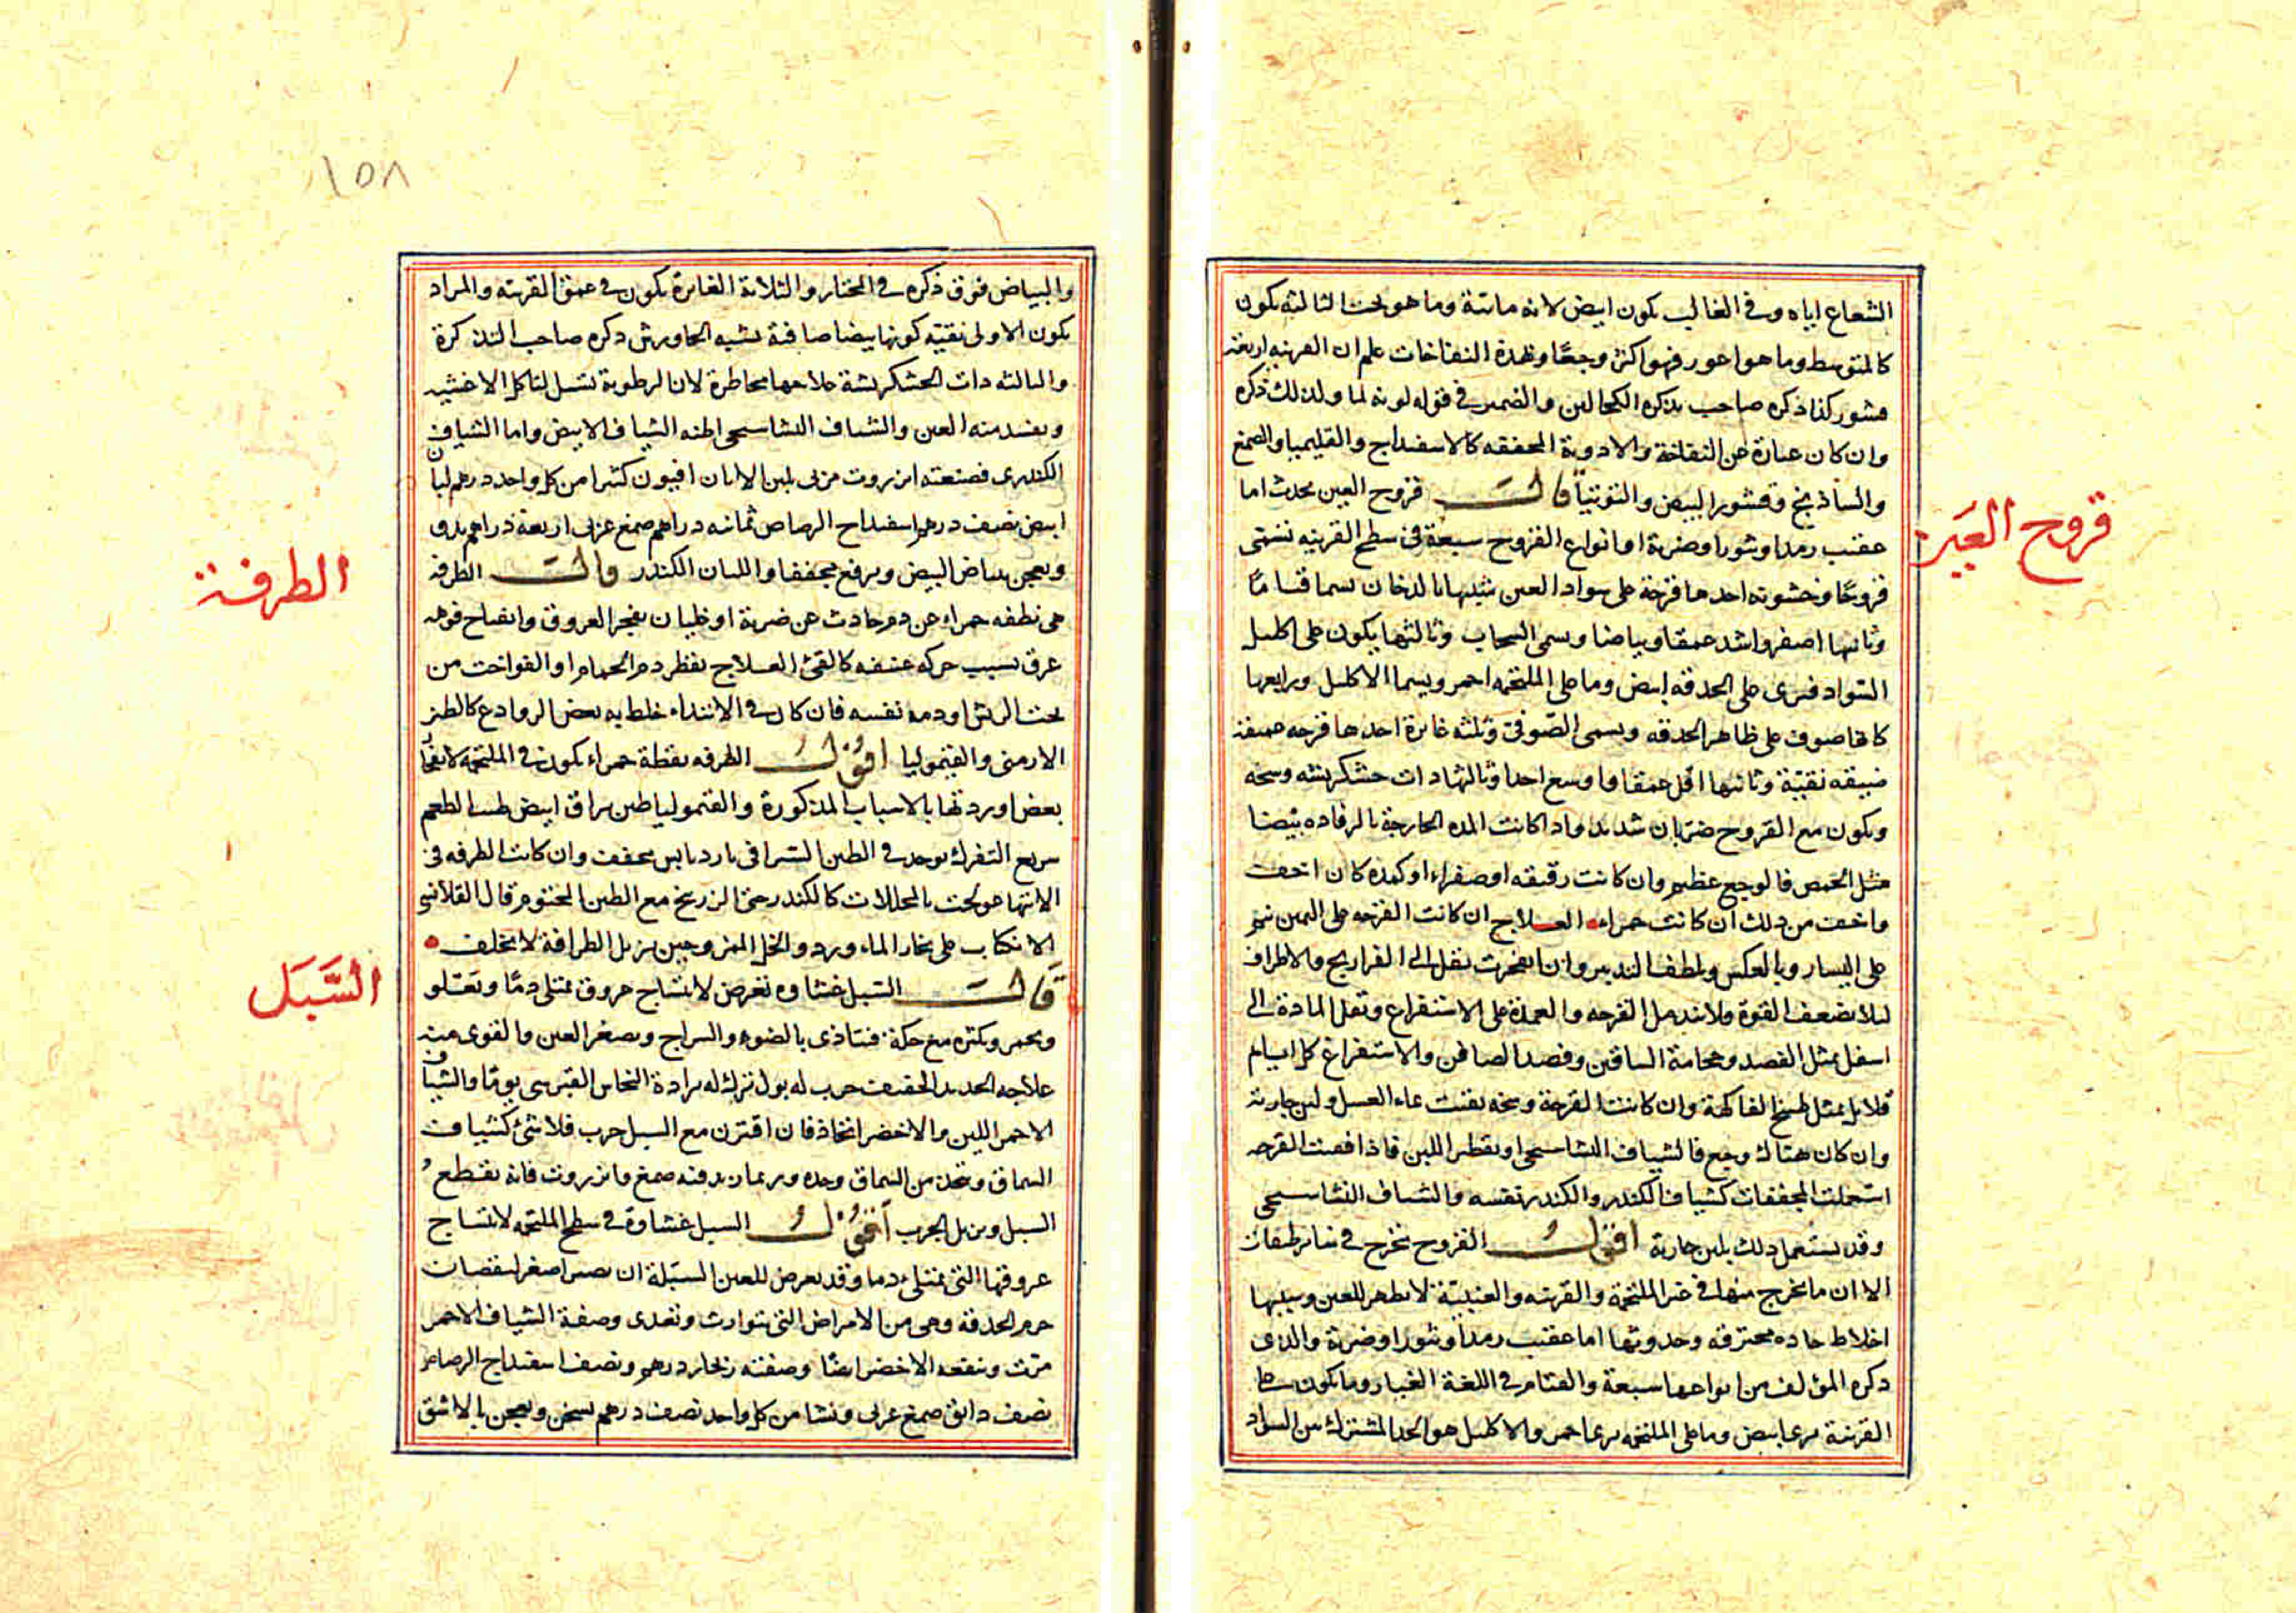 الشعاع اياه وفى الغالب يكون ابيض لانه مائية وما هو تحت الثالثه يكون
كالمتوسط وما هوا غور فهو اكثر وجعًا وهذه النفاخات علم ان القرنيه اربعة
قشور كذا ذكره صاحب تذكرة الكحالين والضمير فى قوله لونه لما ولذلك ذكره
وان كان عبارة عن النفاخة والادوية المجففه كالاسفيداج والقليميا والصمغ
والساذنج وقشور البيض والتوتيا قالــت قروح العين تحدث اما
قروح العين
عقيب رمد او بثور او ضربة اما نواع القروح سبعة فى سطح القرنيه تسمى
قروحًا وخشونه احدها قرحة على سواد العين شبيها بالدخان يسما قتامًا
وثانيها اصغر واشد عمقا وبياضا ويسمى السحاب وثالثها يكون على اكليل
السواد فيرى على الحدقه ابيض وما على الملتحمه احمر ويسما الاكليل ورابعها
كانها صوف على ظاهر الحدقه ويسمى الصوفى وثلثه غائرة احدها قرحه عميقة
ضيقه نقيّة وثانيها اقل عمقا واوسع اخذا وثالثها ذات خشكريشه وسخه
ويكون مع القروح ضربان شديد واذا كانت المده الخارجة بالرفاده بيضا
فالوجع عظيم وان كانت رقيقه او صفراء او كمده كان اخف
واخف من ذلك ان كانت حمراء العـلاج ان كانت القرحه على اليمين نيم
على اليسار وبالعكس ويلطف التدبير وان انفجرت نقل الى الفراريج والاطراف
لئلا يضعف القوة ولا تندمل القرحه والعمدة على الاستفراغ ونقل المادة الى
اسفل بمثل الفصد وحجامة الساقين وفصد الصافن والاستفراغ كل ايام
قلايل بمثل طبيخ الفاكهة وان كانت القرحة وسخه نقيت بماء العسل ولبن جارية
وان كان هناك وجع فالشياف النشاستجى او يقطر اللبن فاذا نقيت القرحه
استعملت المجففات كشياف الكندر والكندر نفسه والشياف النشاستجى
وقد يستعمل ذلك بلبن جارية اقول القروح تخرج فى سائر طبقات
الا ان ما يخرج منها فى غير الملتحمة والقرنيه والعنبيّة لا يظهر للعين وسببها
اخلاط حاده محترقه وحدوثها اما عقيب رمد او بثور او ضربة والذى
ذكره المؤلف من انواعها سبعة والقتام فى اللغة الغبار وما يكون على
القرنية يرى ابيض وما على الملتحمه يرى احمر والاكليل هو الحد المشترك بين السواد
١٥٨
والبياض فوق ذكره فى المختار والثلاثة الغائرة يكون فى عمق القرنيه والمراد
بكون الاولى نقيّه كونها بيضا صافية تشبه الجاورش ذكره صاحب التذكرة
والثالثه ذات الخشكريشة علاجها مخاطرة لان الرطوبة تسيل لتاكل الاغشيه
ويفسد منه العين والشياف النشاستجى اظنه الشياف الابيض واما الشياف
الكندرى فصنعته انزروت مربى بلبن الاتان افيون كثيرا من كل واحد درهم لبان
ابيض نصف درهم اسفيداج الرصاص ثمانيه دراهم صمغ عربى اربعة دراهم يدق
ويعجن ببياض البيض ويرفع مجففا واللبان الكندر قالــت الطرفه
الطرفة
هى نطفه حمراء عن دم حادث عن ضربة او غليان يفجر العروق وانفتاح فوهه
عرق بسبب حركه عنيفه كالقئ العـلاج يقطر دم الحمام او الفواخت من
تحت الريش او دمه نفسه فان كان فى الابتداء خلط به بعض الروادع كالطين
الارمنى والقيموليا اقول الطرفه نقطة حمراء يكون فى الملتحمه لانفجار
بعض اوردتها بالاسباب المذكورة والقيموليا طين براق ابيض طيب الطعم
سريع التفرك يوجد فى الطين السيرافى بارد يابس يجفف وان كانت الطرفه فى
الانتها عولجت بالمحللات كالكندر حتى الزرنيخ مع الطين المختوم قال القلانسى
الانكباب على بخار الماء ورد والخل الممزوجين يزيل الطرافة لا يتخلف
قالــت السّبل غشاوه تعرض لانتساج عروق تمتلى دمًا وتغلو
السَّبَل
ويحمر ويكثره مع حكة فيتاذى بالضوء والسراج ويصغر العين والقوى منه
علاجه الحديد الخفيف جرب له بول ترك له برادة النحاس القبرسى يومًا والشياف
الاحمر اللين والاخضر انخاذ فان اقترن مع السبل جرب فلا شئ كشياف
السماق ويتخذ من السماق وحده وربما زيد فيه صمغ وانزروت فانه يقطع
السبل ويزيل الجرب اقول السبل غشاوة فى سطح الملتحمه لانتساج
عروقها التى تمتلئ دما وقد يعرض للعين السبلة ان يصير اصغر لنقصان
جرم الحدقه وهى من الامراض التى تتوارث وتعدى وصفة الشياف الاحمر
مرت وينفعه الاخضر ايضًا وصفته زنجار درهم ونصف اسفيداج الرصاص
نصف دانق صمغ عربى ونشا من كل واحد نصف درهم يسحق ويعجن بالاشق